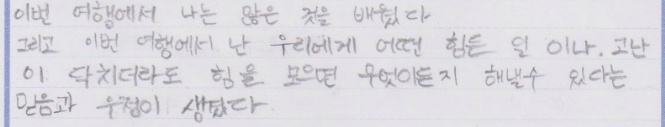 이번 여행에서 나는 많은 것을 배웠다
그리고 이번 여행에서 난 우리에게 어떤 힘든 일 이나. 고난
이 닥치더라도 힘을 모으면 무엇이든지 해낼수 있다는
믿음과 우정이 생겼다